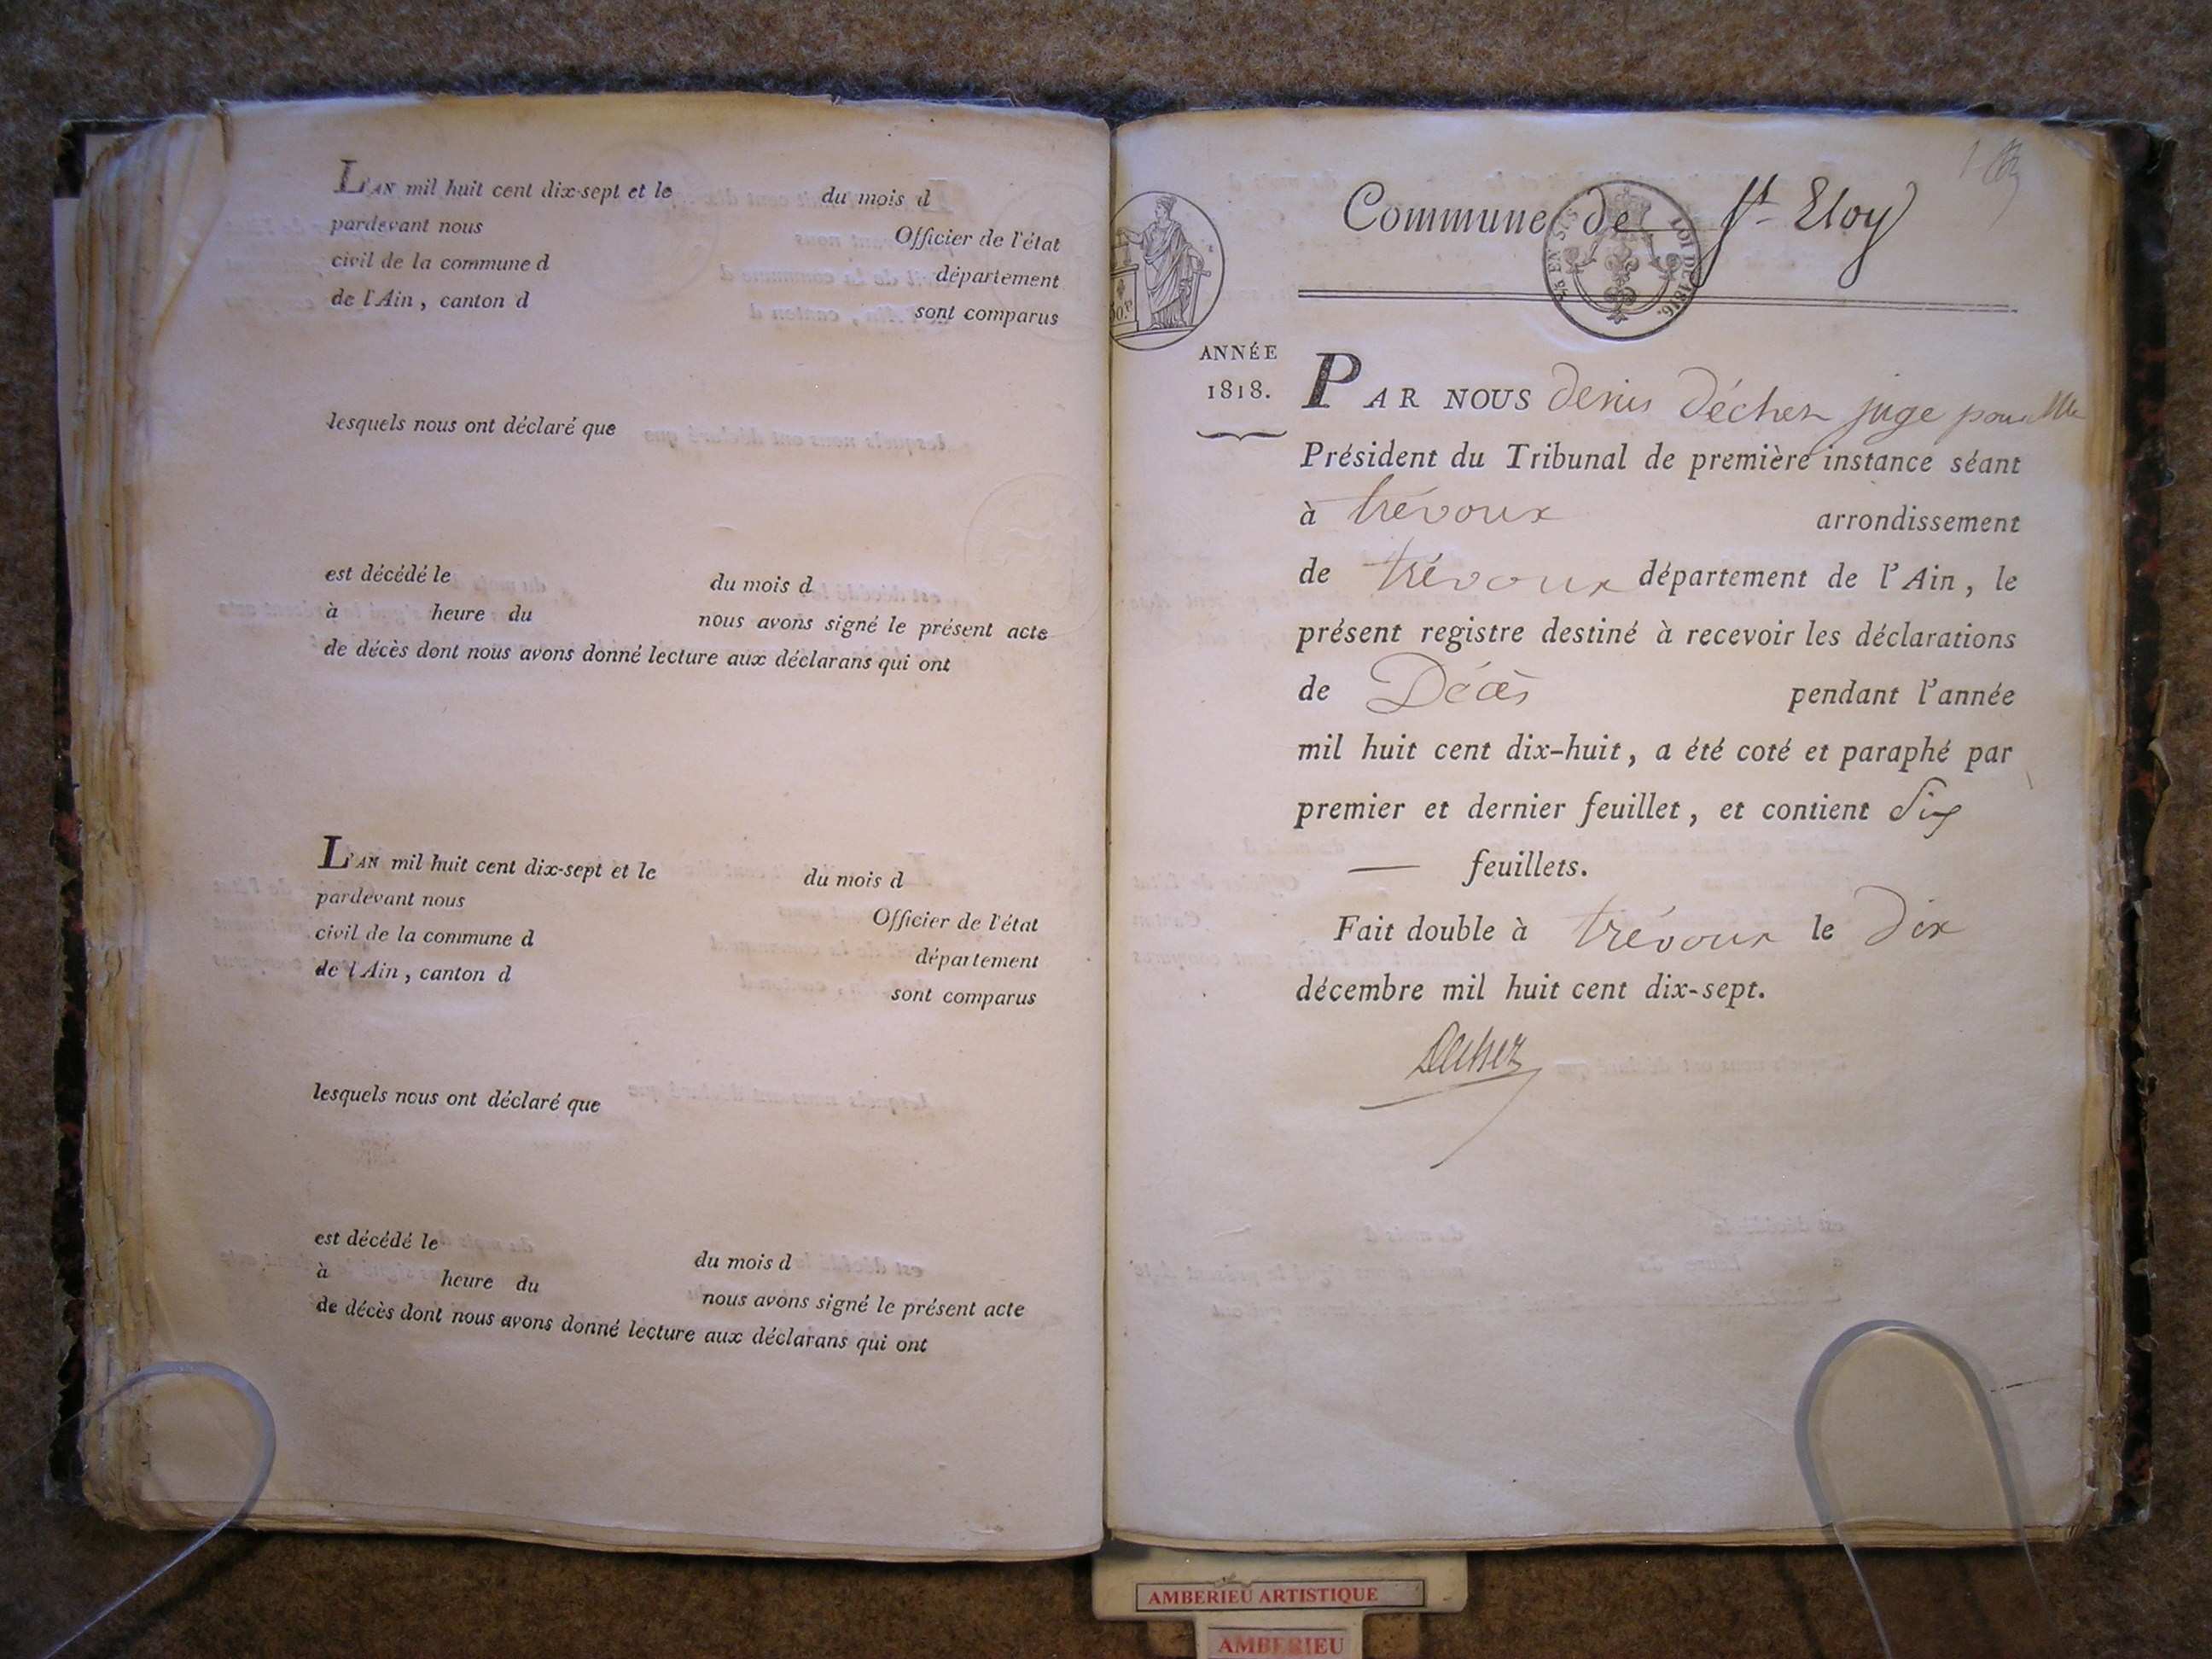 L'AN mil huit cent dix-sept et le du mois d
pardevant nous Officier de l'état
civil de la commune d département
de l'Ain, canton d sont comparus
lesquels nous ont déclaré que
est décédé le du mois d
à heure du nous avons signé le présent acte
de décès dont nous avons donné lecture aux déclarans qui ont
L'AN mil huit cent dix-sept et le du mois d
pardevant nous Officier de l'état
civil de la commune d département
de l'Ain, canton d sont comparus
lesquels nous ont déclaré que
est décédé le du mois d
à heure du nous avons signé le présent acte
de décès dont nous avons donné lecture aux déclarans qui ont
Commune de St Eloy
EN SUS LOI DE 1816.
ANNÉE
1818.
PAR NOUS denis Déchez juge pour
Président du Tribunal de première instance séant
à trévoux arrondissement
de trévoux département de l'Ain, le
présent registre destiné à recevoir les déclarations
de Décès pendant l'année
mil huit cent dix-huit, a été coté et paraphé par
premier et dernier feuillet, et contient Six
— feuillets.
Fait double à trévoux le Dix
décembre mil huit cent dix-sept.
Dechez
AMBERIEU ARTISTIQUE
AMBERIEU